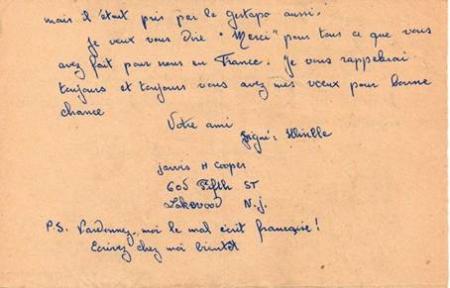 mais il était pris par le gestapo aussi.
Je veux vous dire "Merci" pour tous ce que vous
avez fait pour nous en France. Je vous rappelerai
toujours et toujours vous avez mes vœux pour bonne
chance
Votre ami
Signé:
Jarvis H Cooper
605 Fifth ST
Lakewood N.J.
P.S. Pardonnez-moi le mal écrit française!
Ecrivez chez moi bientôt